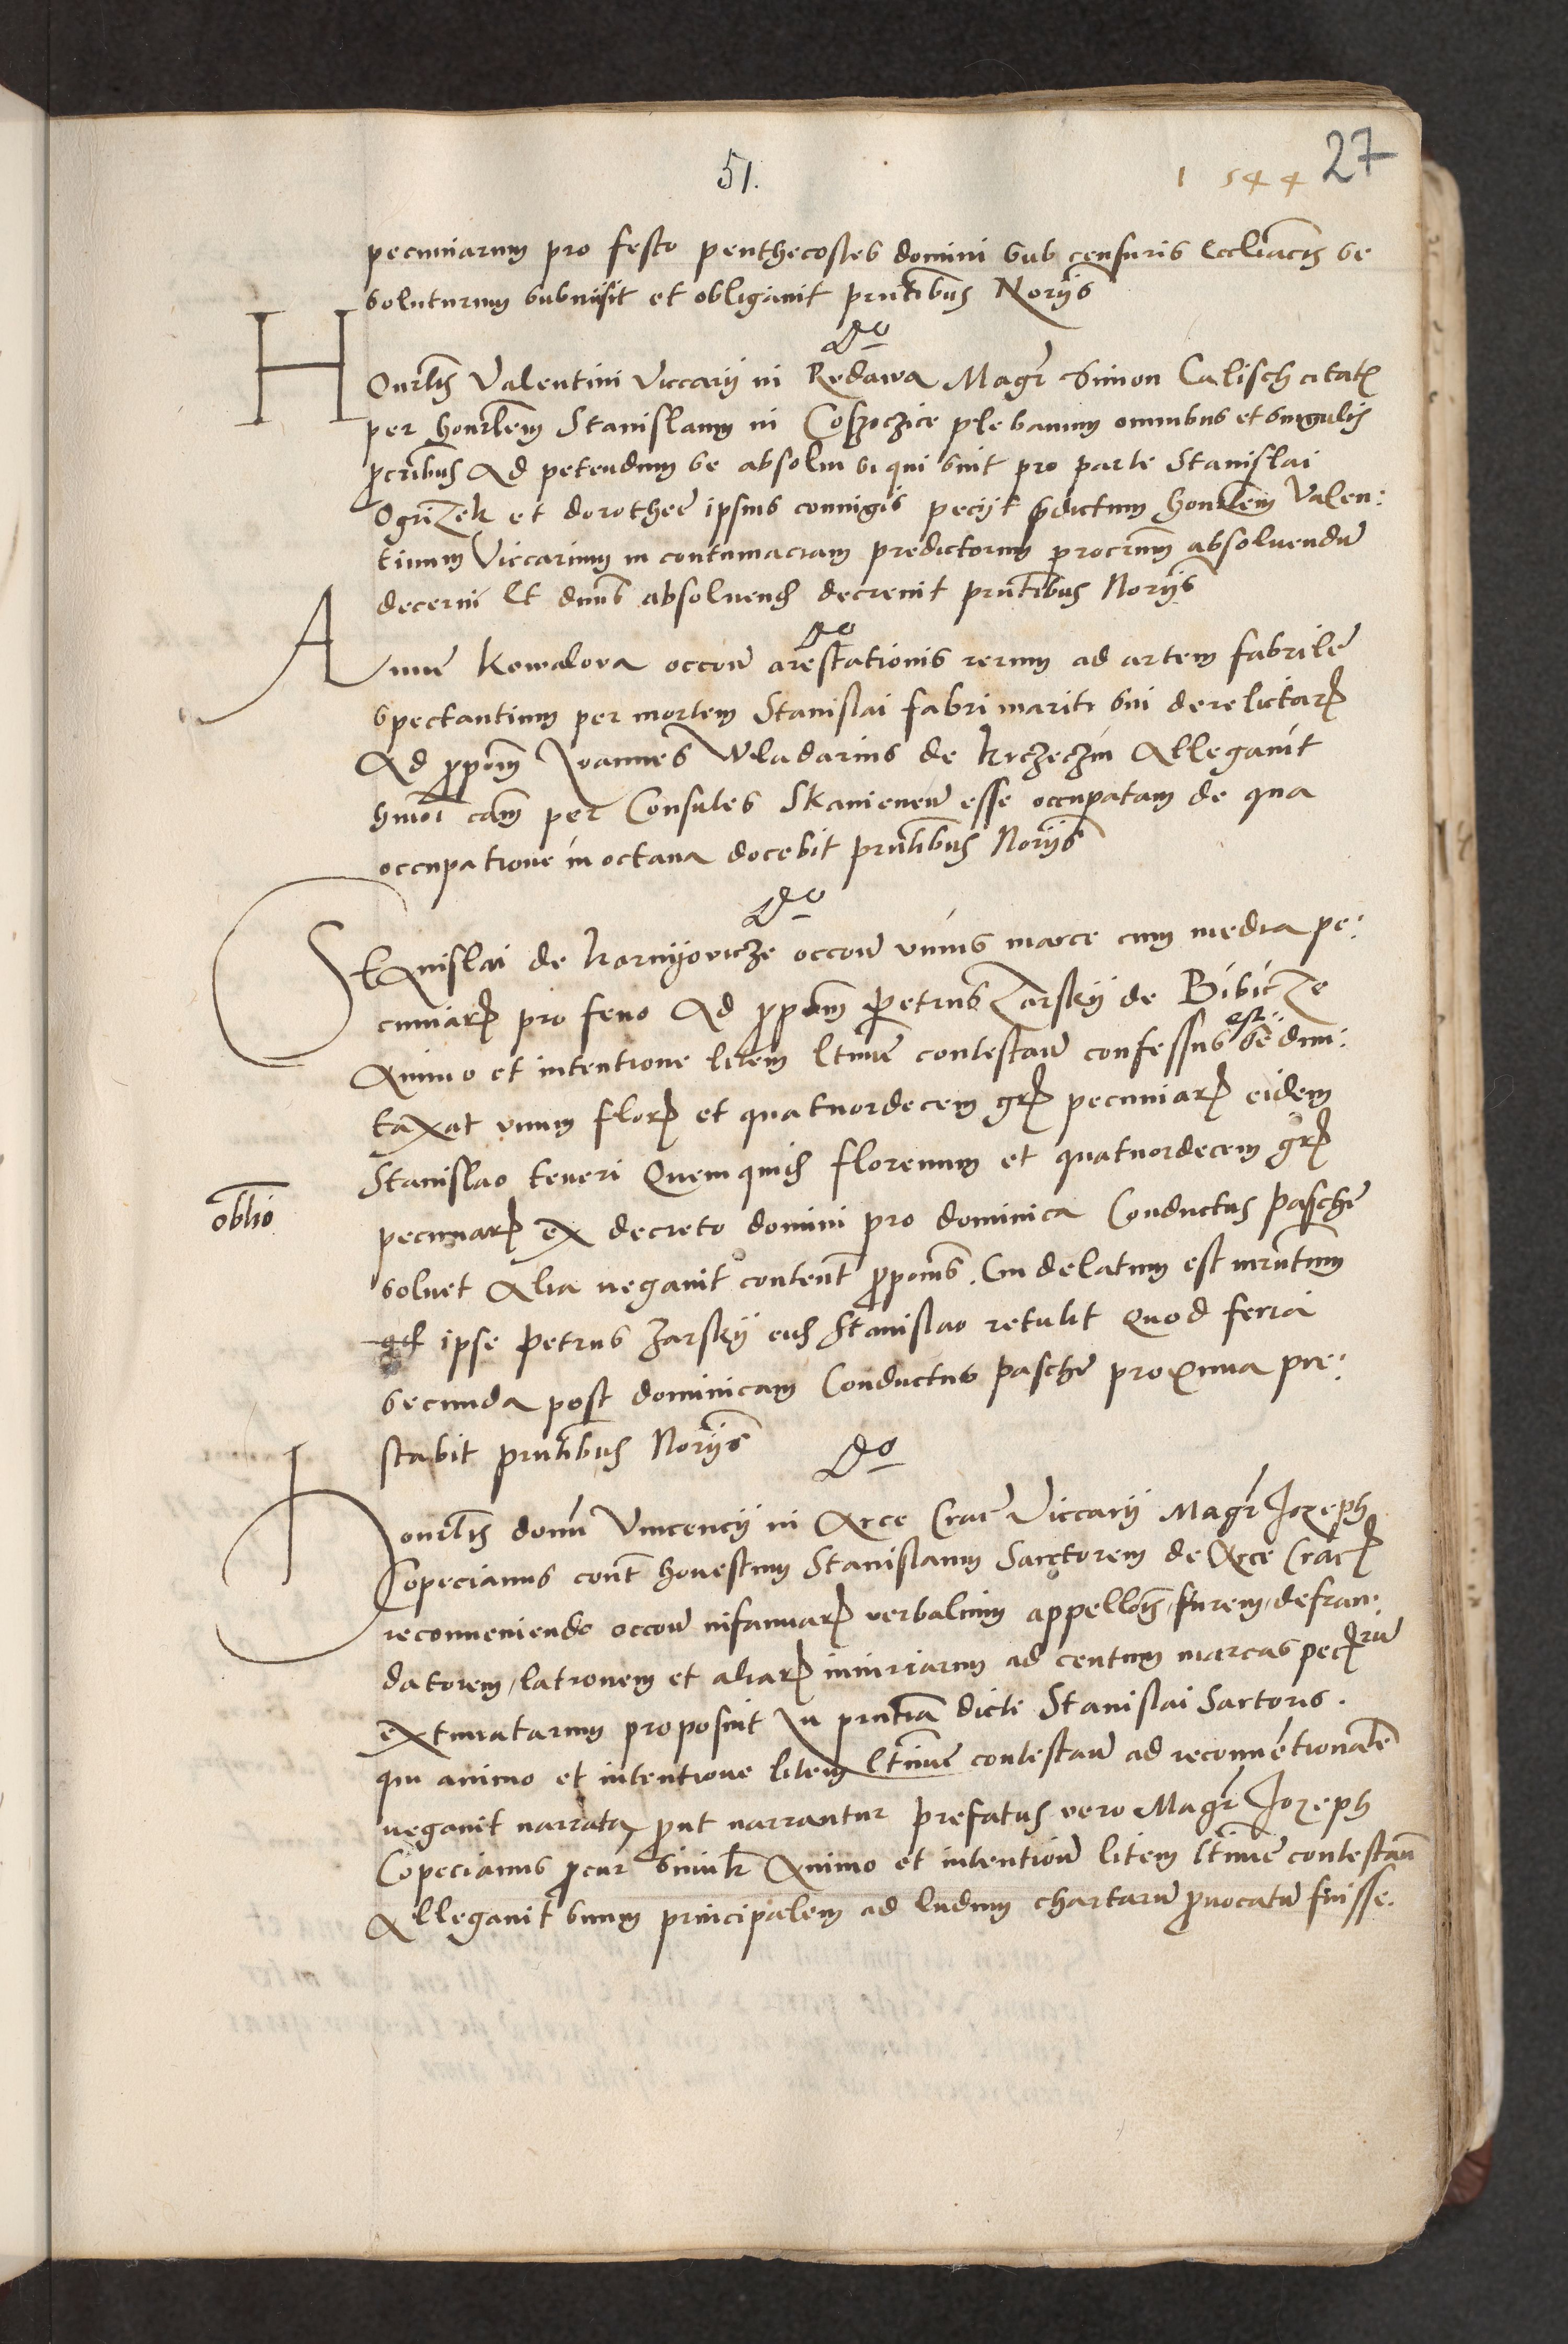 51.
1544 27
pecuniarum pro festo penthecostes domini sub censuris Eccliacis se
soluturum submisit et obligavit pntibus Norijs
Do
Honrlis Valentini Viccarij in Rudawa Magr Simon Calisch citatus
per honrlem Stanislaum in Coszoczice plebanum omnibus et singulis
pcribus Ad petendum se absolui si qui sint pro parte Stanislai
Ogrizek et dorothee ipsius coniugis peciit pdictum honrlem Valen:
tinum Viccarium in contumaciam predictorum procrum absoluendu
decerni Et dnus absoluend decreuit pntibus Norijs
Do
Anne kowalova occone arestationis rerum ad artem fabrile
spectantium per mortem Stanislai fabri mariti sui derelictarum
Ad ppom Joannes Wladarius de krczeczin Allegauit
hmoi cam per Consules Skauienen esse occupatam de qua
occupatione in octaua docebit pntibus Norijs
Do
Stanislai de kornijovicze occone unius marce cum media pe:
cuniarum pro feno Ad ppom Petrus Zarskij de Bibicze
Animo et intentione litem ltime contestan confessus est se dun:
taxat unum flor et quatuordecem gr pecuniarum eidem
Stanislao teneri Quem quid florenum et quatuordecem gr
oblio
pecuniarum ex decreto domini pro dominica Conductus pasche
soluet Alia negauit content ppomis. Cui delatum est iurntum
qd ipse Petrus Zarskij eid Stanislao retulit Quod feria
secunda post dominicam Conductus pasche proxima pre:
stabit pntibus Norijs
Do
Honrlis domi Vincencij in Arce Crac Viccarij Magr Jozeph
Copecianus cont honestum Stanislaum Sartorem de Arce Crac
reconueniendo occone infamiarum verbalium appellois, furem, defrau:
datorem, latronem et aliarum iniuriarum ad centum marcas pecru
extimatarum proposuit In pntia dicti Stanislai Sartoris.
qui animo et intentione litem ltime contestan ad reconuentionale
negauit narrata, put narrantur prefatus vero Magr Jozeph
Copecianus pcur simlr Animo et intentione litem ltime contestan
Allegauit suum principalem ad ludum chartaru puocatu fuisse.